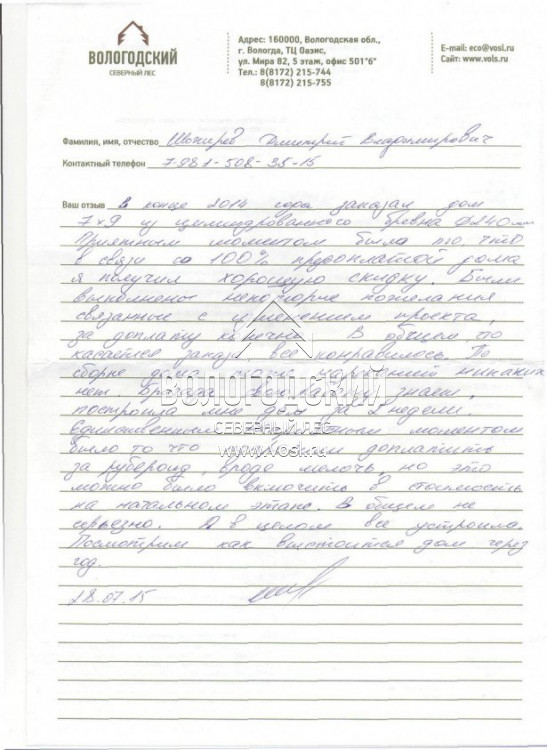 ВОЛОГОДСКИЙ
СЕВЕРНЫЙ ЛЕС
Адрес: 160000, Вологодская обл.,
г. Вологда, ТЦ Оазис,
ул. Мира 82, 5 этаж, офис 501"б"
Тел.: 8(8172) 215-744
8(8172) 215-755
E-mail: eco@vosl.ru
Сайт: www.vols.ru
Фамилия, имя, отчество Дмитрий Владимирович
Контактный телефон 7-981-508-35-15
Ваш отзыв В конце 2014 года заказал дом
7х9 из цилиндрованного бревна Ø240мм
Приятным моментом было то, что
в связи со 100% предоплатой дома
я получил хорошую скидку. Были
выполнены некоторые пожелания
связанные с изменением проекта,
за доплату конечно. В общем что
касается заказа все понравилось. По
сборке дома нареканий никаких
нет. Бригада знает,
построила мне дом за 2 недели.
Единственным моментом
было то что доплатить
за рубероид, вроде мелочь, но это
можно было включить в стоимость
на начальном этапе. В общем не
серьезно. А в целом все устроило.
Посмотрим как выстоится дом через
год.
28.07.15
ВОЛОГОДСКИЙ
СЕВЕРНЫЙ ЛЕС
www.vosl.ru